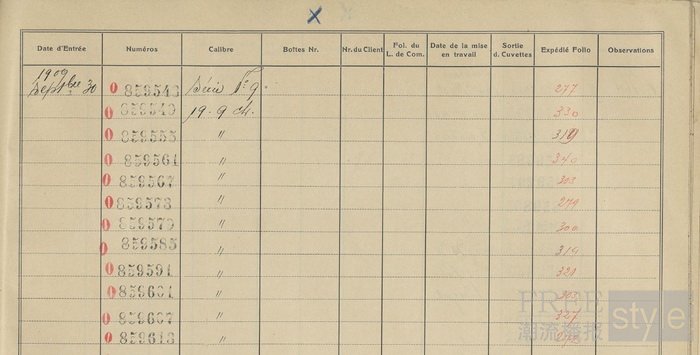 X
Date d'Entrée Numéros Calibre Boîtes Nr. Nr. du Client Fol. du L. de Com. Date de la mise en travail Sortie d. Cuvettes Expédié Folio Observations
1909
Septbre 30 0 859543 Série 277
0 859549 19. 9 330
0 859555 " 319
0 859561 " 340
0 859567 " 303
0 859573 " 279
0 859579 " 300
0 859585 " 319
0 859591 " 321
0 859601 " 303
0 859607 " 327
0 859613 "
FREE style
潮流播报